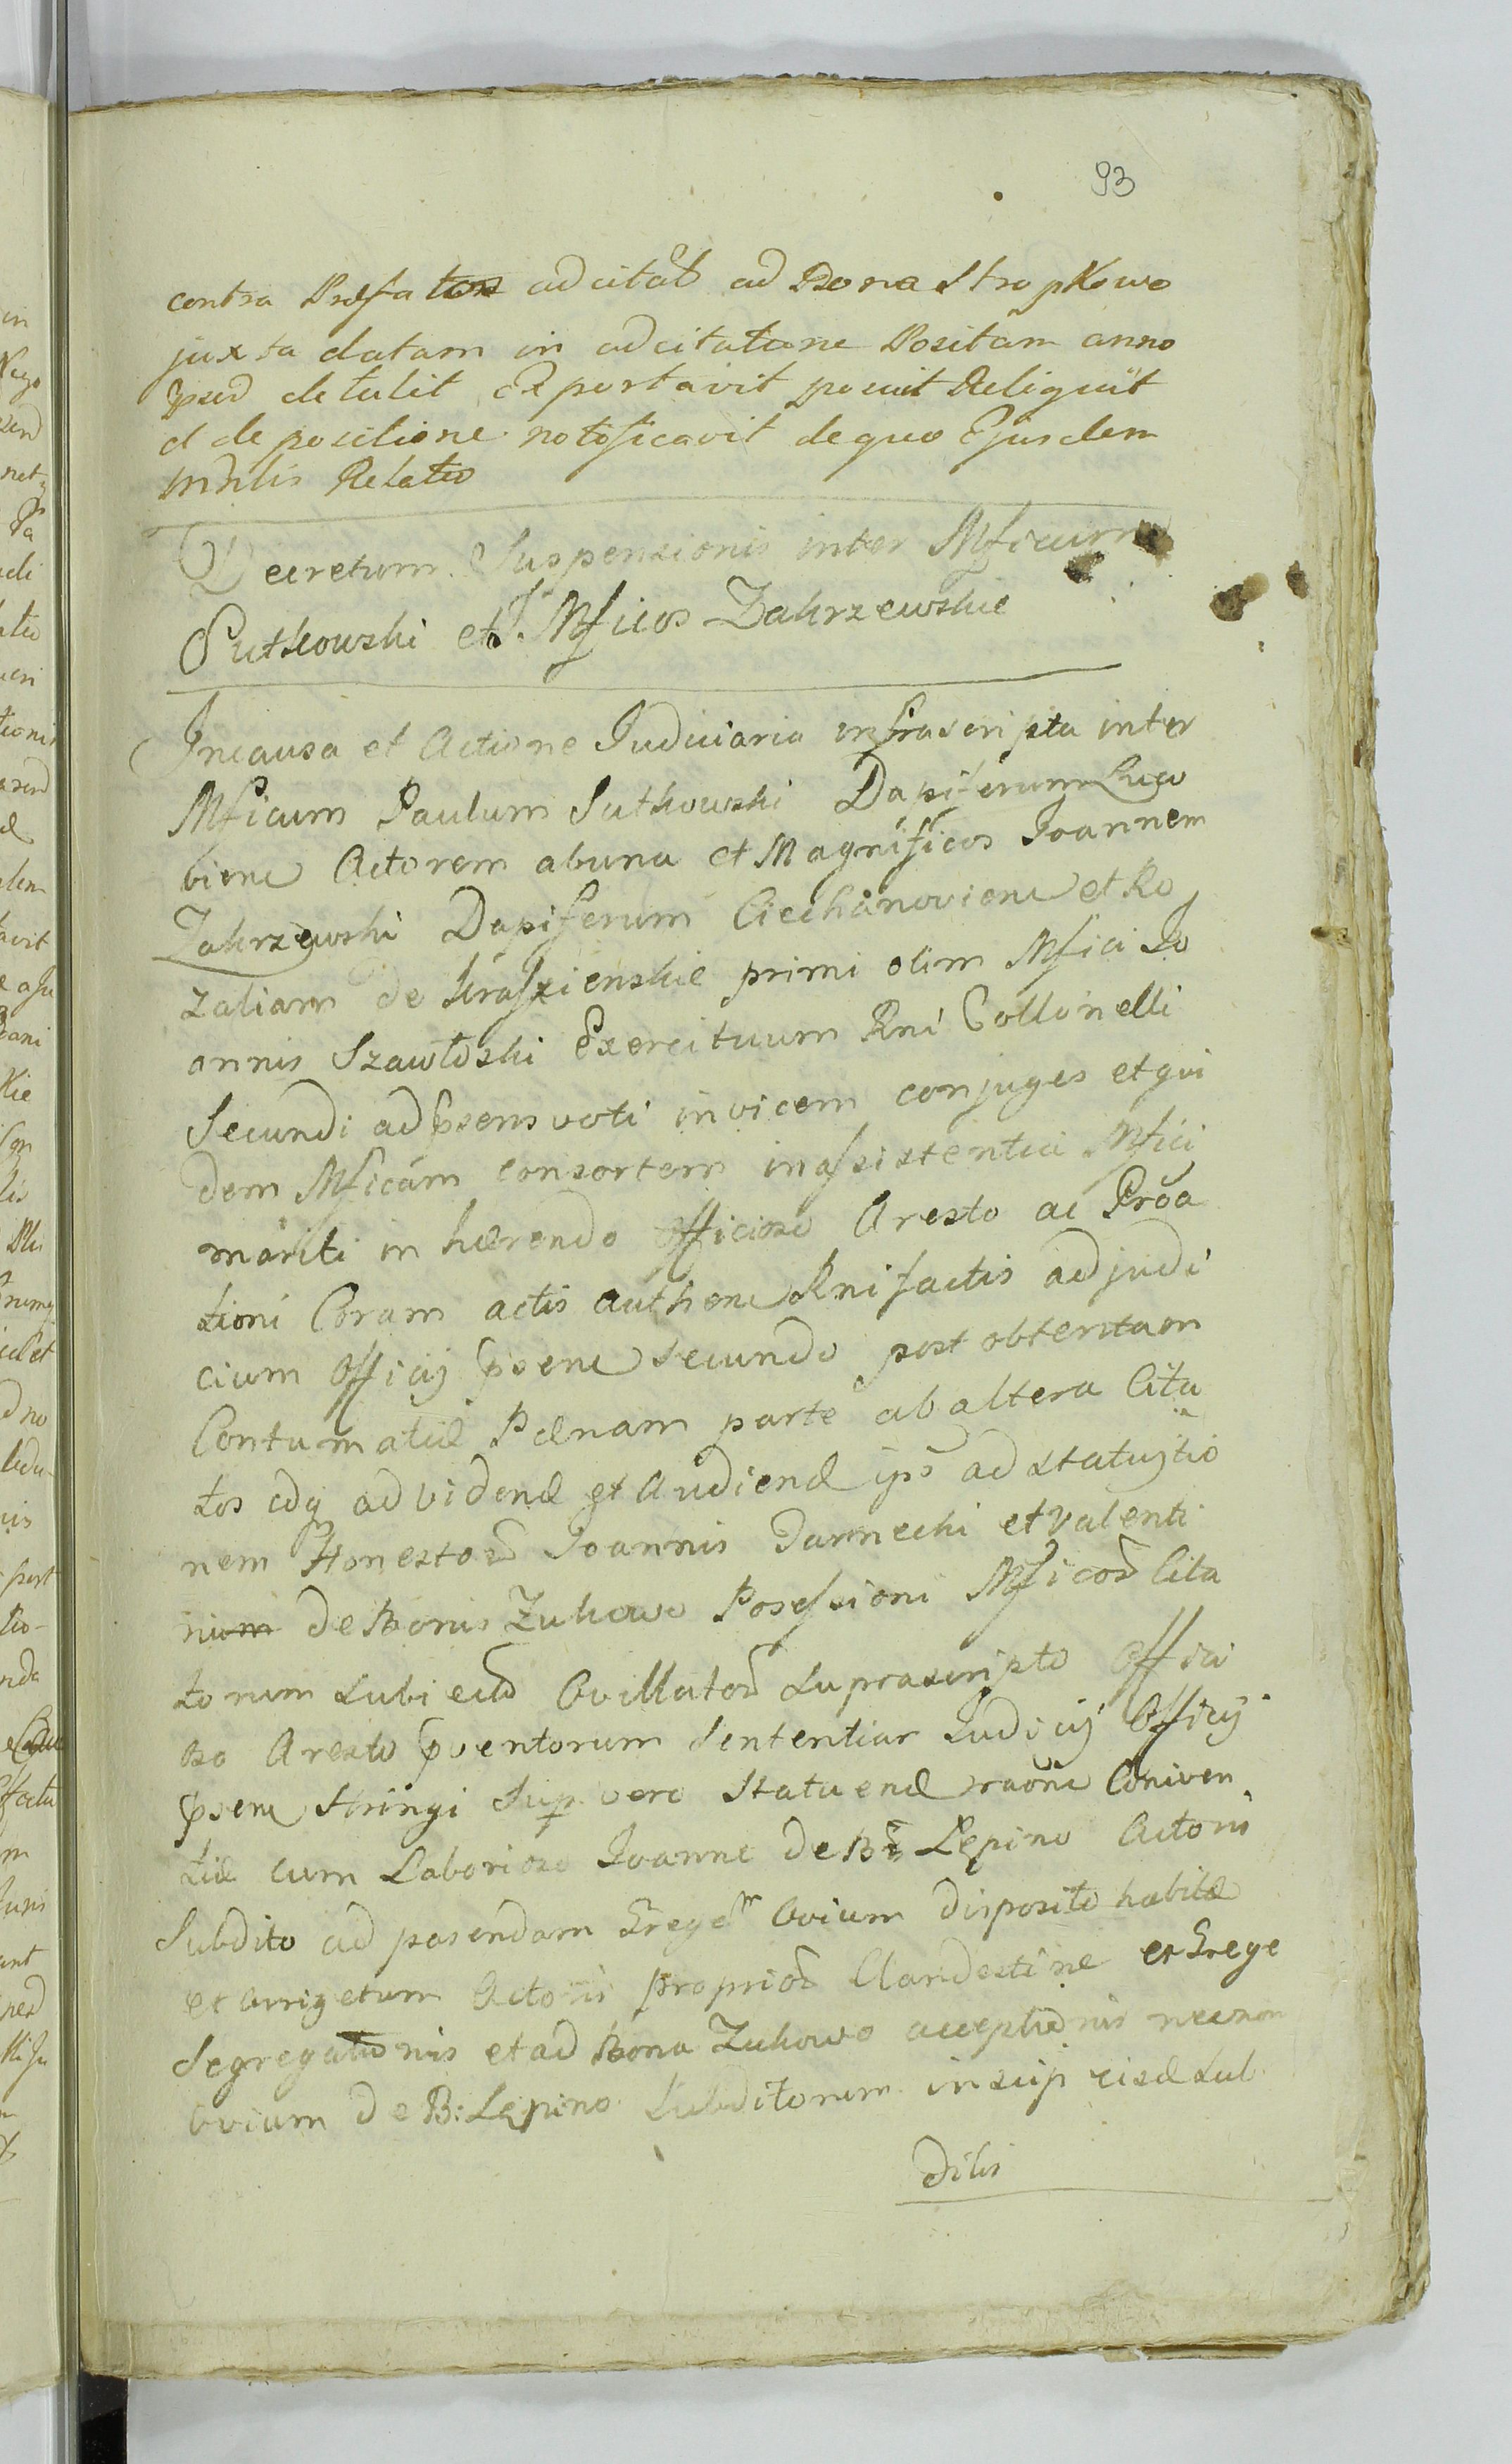 93
contra Præfatos adcitat ad Bona Stropkowo
juxta datam in adcitatione Positam anno
pnd detulit Reportavit posuit Reliquit
et de positione notificavit de quo Ejusdem
Mnlis Relatio
Decretum Suspensionis inter Mficum
Sutkowski et Mficos Zakrzewskie
In causa et Actione Judiciaria infrascripta inter
Mficum Paulum Sutkowski Dapiferum Racio
bienc Actorem ab una et Magnificos Joannem
Zakrzewski Dapiferum Ciechanoviens et Ro
zaliam de Krassienskie primi olim Mfici Jo
annis Szawłoski Exercituum Rni Collonelli
Secundi ad psens voti invicem conjuges et qui
dem Mficam consortem in assistentia Mfici
mariti in hærendo officioso Aresto ac Proa
tioni Coram actis authenc Rni factis ad judi
cium Officij psenc secundo post obtentam
Contumatiæ Pænam parte ab altera Cita
tos idq ad vidend et Audiend ips ad statujtio
nem Honestor Joannis Jarnecki et Valenti
num de Bonis Zukowo Possessioni Mficor Cita
torum Subiect Ovillator suprascripto Offici
oso Aresto pventorum Sententiar Judicij Officij
psenc Stringi Sup vero Statuend raone Coniven
tiæ cum Laborioso Joanne de Bs Lępino Actoris
Subdito ad pasendam Gregem Ovium disposito habitæ
et Actoris proprior Clandestine et Grege
Segregationis et ad Bona Zukowo acceptionis necnon
Ovium de B: Lępino Subditorum insup eisd Sub
ditis